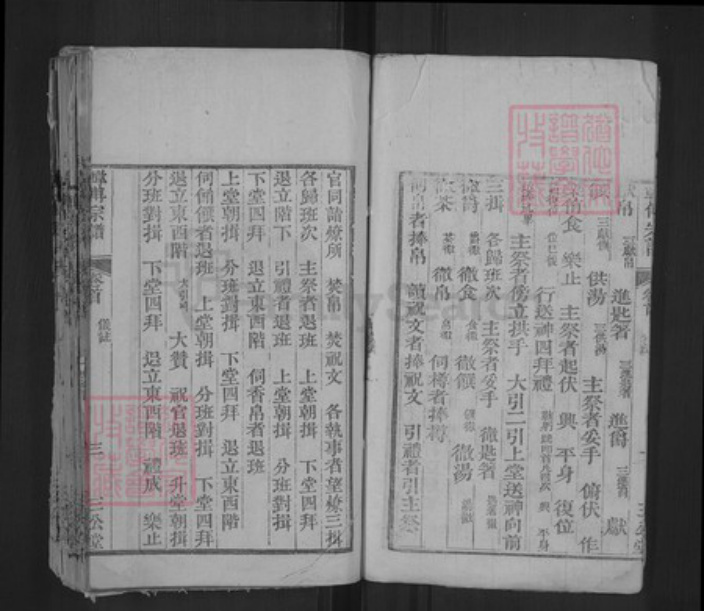 帛
進匙箸
進爵
獻
供湯
主祭者妥手
俯伏
作
侑食
樂止
主祭者起伏
興
平身
復位
行送神四拜禮
主祭者傍立拱手
大引二引上堂送神向前
三揖
各歸班次
主祭者妥手
徹匙箸
徹爵
徹食
徹饌
徹湯
徹茶
徹帛
伺樽者捧樽
伺帛者捧帛
讀祝文者捧祝文
引禮者引主祭
官同詣燎所
焚帛
焚祝文
各執事者望燎三揖
各歸班次
主祭者退班
上堂朝揖
下堂四拜
退立階下
引禮者退班
上堂朝揖
分班對揖
下堂四拜
退立東西階
伺香帛者退班
上堂朝揖
分班對揖
下堂四拜
退立東西階
伺餚饌者退班
上堂朝揖
分班對揖
下堂四拜
退立東西階
大贊
祝官退班
升堂朝揖
分班對揖
下堂四拜
退立東西階
禮成
樂止
宗譜
卷首
儀註
三
三公堂